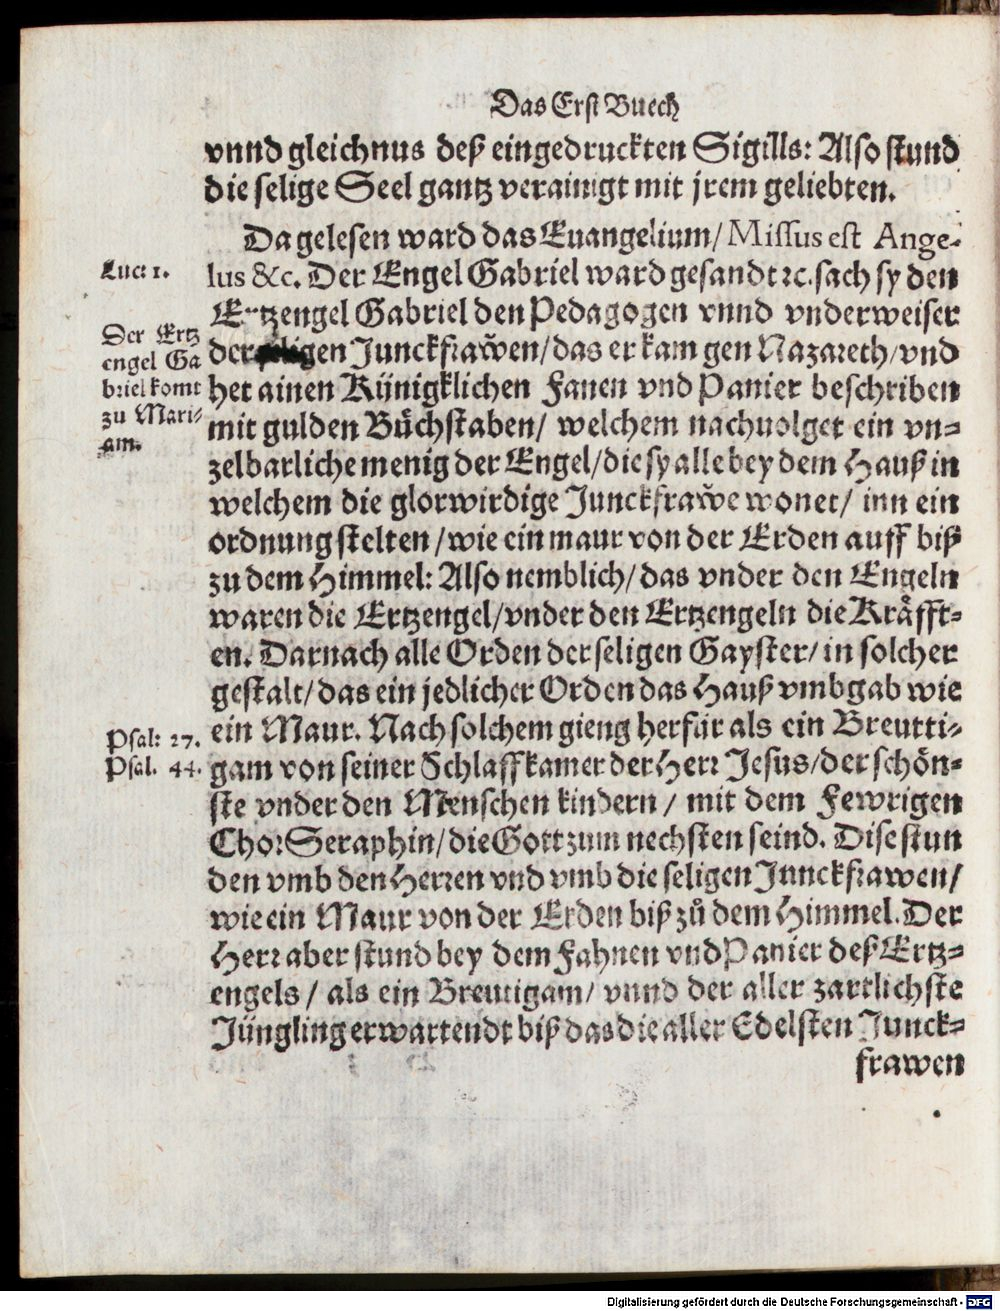 Das Erst Buech
vnnd gleichnus deß eingedruckten Sigills: Also stund
die selige Seel gantz verainigt mit jrem geliebten.
Da gelesen ward das Euangelium/ Missus est Ange-
Luce 1.
lus &c. Der Engel Gabriel ward gesandt ꝛc. sach sy den
Ertzengel Gabriel den Pedagogen vnnd vnderweiser
Der Ertz
engel Ga
briel komt
zu Mari-
am.
der seligen Junckfrawen/ das er kam gen Nazareth/ vnd
het ainen Künigklichen Fanen vnd Panier beschriben
mit gulden Bůchstaben/ welchem nachuolget ein vn-
zelbarliche menig der Engel/ die sy alle bey dem Hauß in
welchem die glorwirdige Junckfrawe wonet/ inn ein
ordnung stelten/ wie ein maur von der Erden auff biß
zu dem Himmel: Also nemblich/ das vnder den Engeln
waren die Ertzengel/ vnder den Ertzengeln die Kräfft-
en. Darnach alle Orden der seligen Gayster/ in solcher
gestalt/ das ein jedlicher Orden das Hauß vmbgab wie
ein Maur. Nach solchem gieng herfür als ein Breutti-
Psal: 27.
Psal. 44.
gam von seiner Schlaffkamer der Herr Jesus/ der schön-
ste vnder den Menschen kindern/ mit dem Fewrigen
Chor Seraphin/ die Gott zum nechsten seind. Dise stun
den vmb den Herren vnd vmb die seligen Junckfrawen/
wie ein Maur von der Erden biß zů dem Himmel. Der
Herr aber stund bey dem Fahnen vnd Panier deß Ertz-
engels/ als ein Breutigam/ vnnd der aller zartlichste
Jüngling erwartendt biß das die aller Edelsten Junck-
frawen
Digitalisierung gefördert durch die Deutsche Forschungsgemeinschaft - DFG